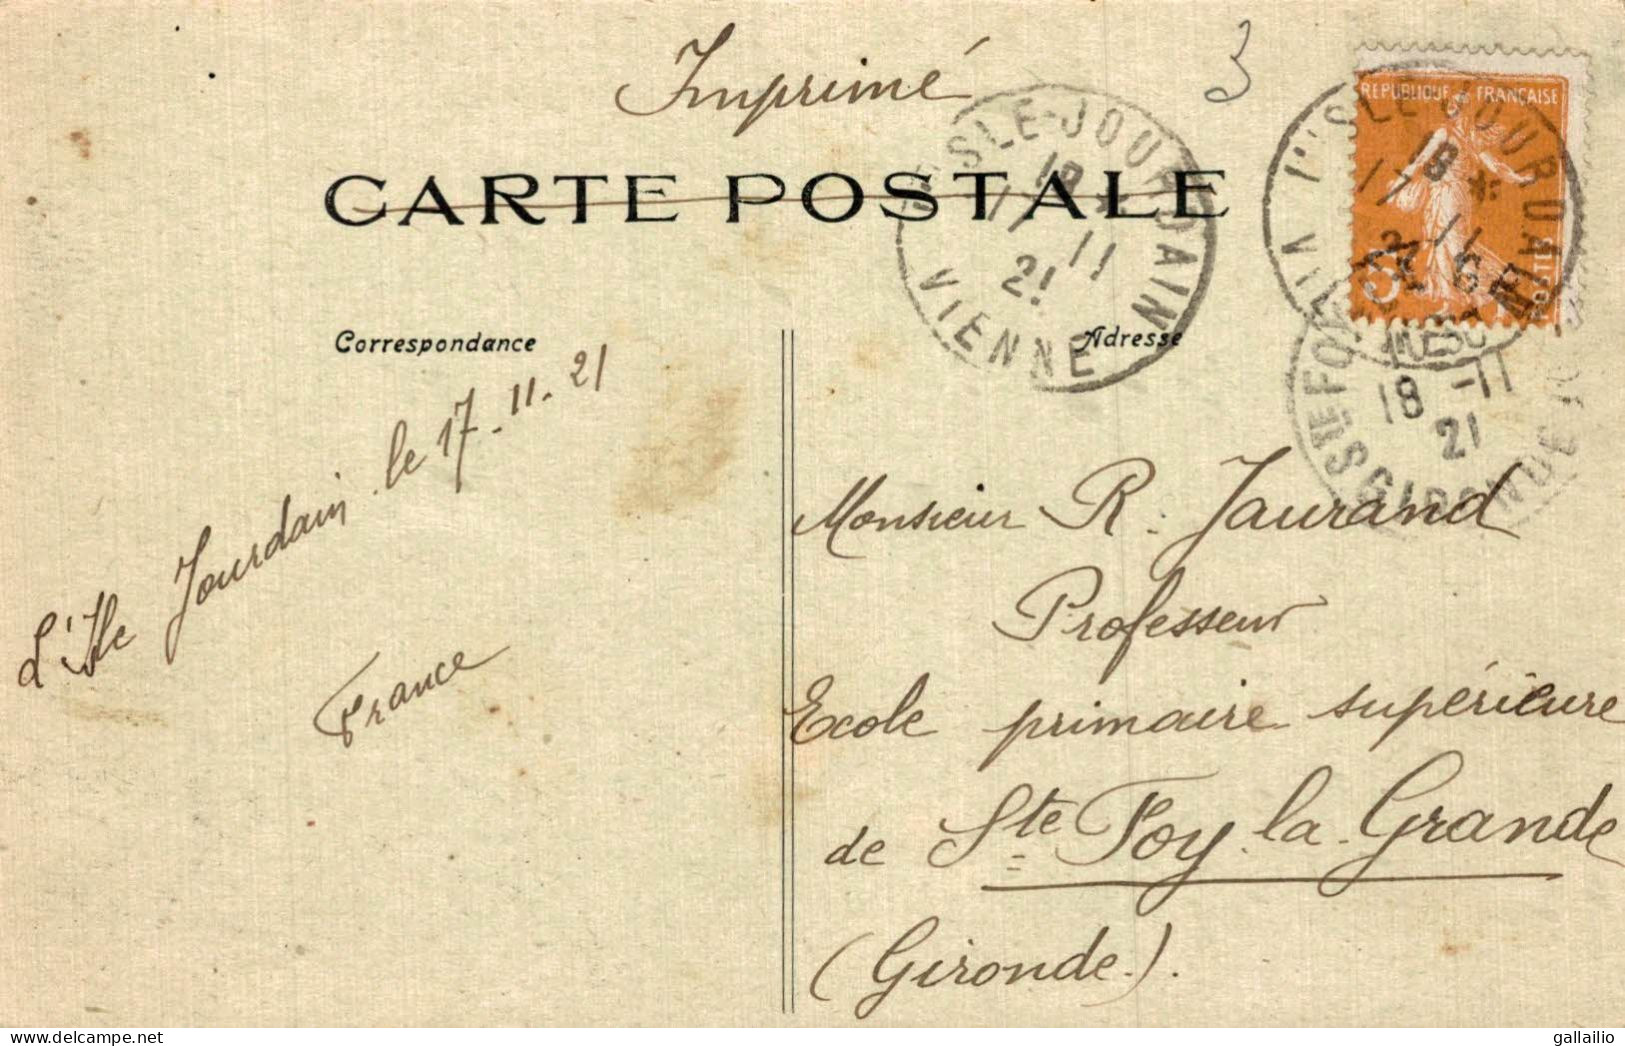 Imprimé
3
RÉPUBLIQUE FRANÇAISE
CARTE POSTALE
L'ISLE-JOURDAIN
18 *
17 11
21
VIENNE
L'ISLE-JOURDAIN
18 *
17 11
5
STE FOY
18 -11
21
GIRONDE
Correspondance
Adresse
L'Isle Jourdain le 17-11-21
France
Monsieur R. Jaurand
Professeur
Ecole primaire supérieure
de Ste Foy-la-Grande
(Gironde).
delcampe.net
gallailio